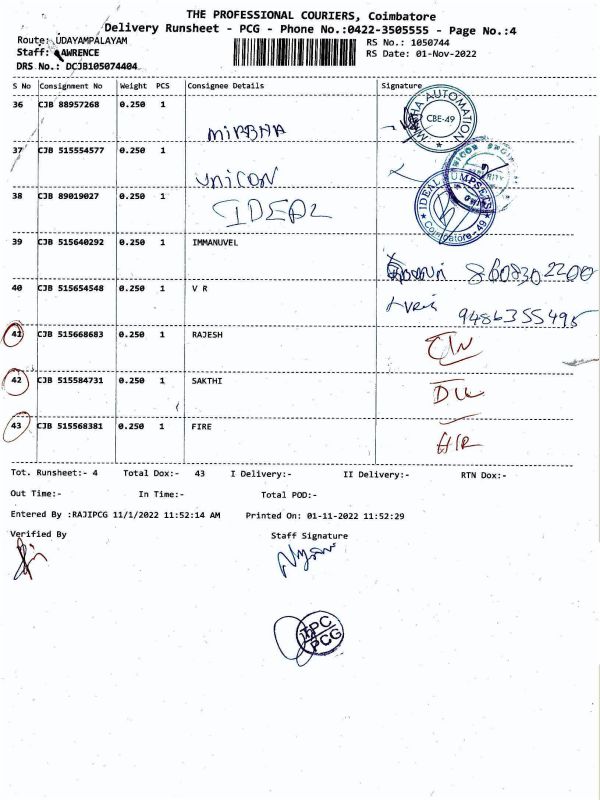 THE PROFESSIONAL COURIERS, Coimbatore
Delivery Runsheet - PCG - Phone No.:0422-3505555 - Page No.:4
Route: UDAYAMPALAYAM
RS No.: 1050744
Staff: LAWRENCE
RS Date: 01-Nov-2022
DRS No.: DCJB105074404
S No Consignment No Weight PCS Consignee Details Signature
36 CJB 88957268 0.250 1
CBE-49
37 CJB 515554577 0.250 1
UNICON
38 CJB 89019027 0.250 1
IDEAL
Coimbatore - 49
39 CJB 515640292 0.250 1 IMMANUVEL
8608302200
40 CJB 515654548 0.250 1 V R
9486355495
41 CJB 515668683 0.250 1 RAJESH
42 CJB 515584731 0.250 1 SAKTHI
43 CJB 515568381 0.250 1 FIRE
Tot. Runsheet:- 4 Total Dox:- 43 I Delivery:- II Delivery:- RTN Dox:-
Out Time:- In Time:- Total POD:-
Entered By :RAJIPCG 11/1/2022 11:52:14 AM Printed On: 01-11-2022 11:52:29
Verified By Staff Signature
TPC
PCG